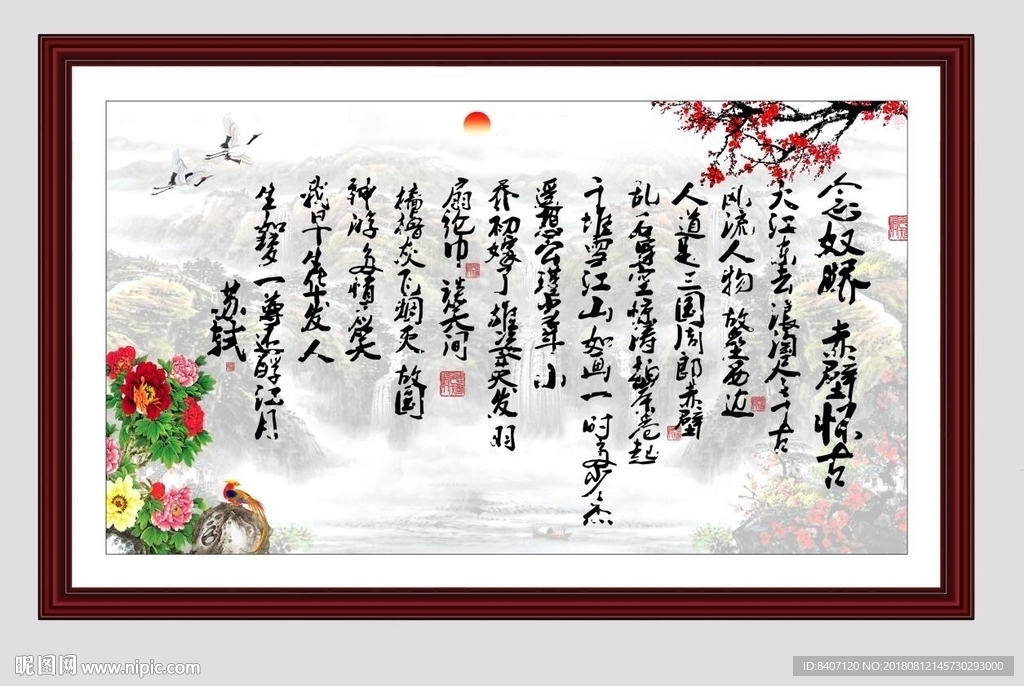 念奴娇 赤壁怀古
大江东去浪淘尽千古
风流人物 故垒西边
人道是三国周郎赤壁
乱石穿空惊涛拍岸卷起
千堆雪江山如画一时多少豪杰
遥想公瑾当年小
乔初嫁了雄姿英发羽
扇纶巾 谈笑间
樯橹灰飞烟灭 故国
神游多情应笑
我早生华发人
生如梦一尊还酹江月
苏轼
昵图网 www.nipic.com
ID:8407120 NO:20180812145730293000